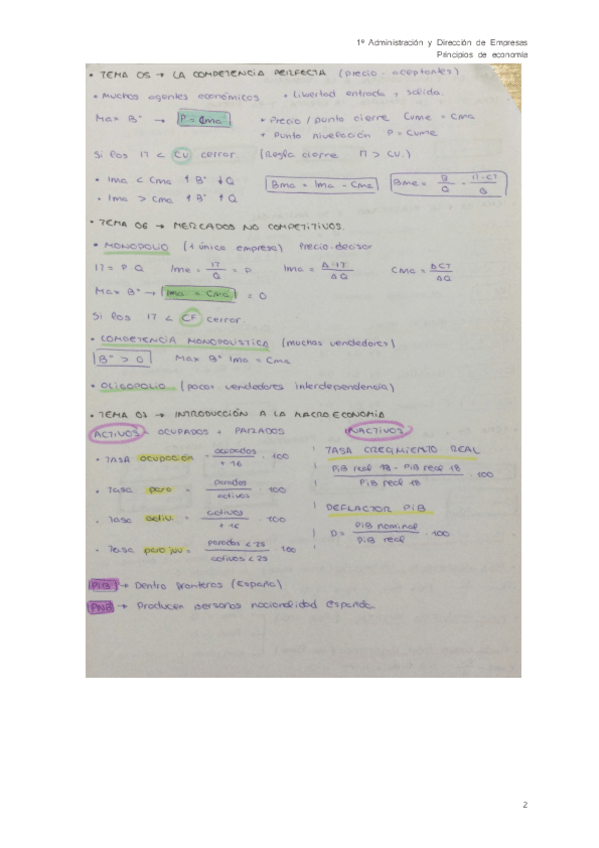 1º Administración y Dirección de Empresas
Principios de economía
• TEMA 05 → LA COMPETENCIA PERFECTA (precio-aceptantes)
• Muchos agentes económicos. • Libertad entrada y salida.
Max Bº → P = Cma
+ Precio / punto cierre CVme = Cma
+ Punto nivelación P = CVme
Si los IT < CV cerrar (Regla cierre IT > CV.)
• Ima < Cma ↑ Bº ↓ Q
• Ima > Cma ↑ Bº ↑ Q
Bma = Ima - Cma
Bme = B/Q = IT-CT/Q
• TEMA 06 → MERCADOS NO COMPETITIVOS.
• MONOPOLIO (1 única empresa) Precio-decisor
IT = P Q Ime = IT/Q = P Ima = Δ IT/Δ Q Cma = Δ CT/Δ Q
Max Bº → Ima = Cma = 0
Si los IT < CF cerrar.
• COMPETENCIA MONOPOLISTICA (muchos vendedores)
Bº > 0 Max Bº Ima = Cma
• OLIGOPOLIO (pocos vendedores interdependencia)
• TEMA 07 → INTRODUCCIÓN A LA MACROECONOMÍA
ACTIVOS = OCUPADOS + PARADOS
INACTIVOS
• TASA ocupación = ocupados/+ 16 · 100
• Tasa paro = parados/activos · 100
• Tasa activ. = activos/+ 16 · 100
• Tasa paro juv = parados < 25/activos < 25 · 100
TASA CRECIMIENTO REAL
PIB real 19 - PIB real 18/PIB real 18 · 100
DEFLACTOR PIB
D = PIB nominal/PIB real · 100
PIB → Dentro fronteras (España)
PNB → Producen personas nacionalidad España
2